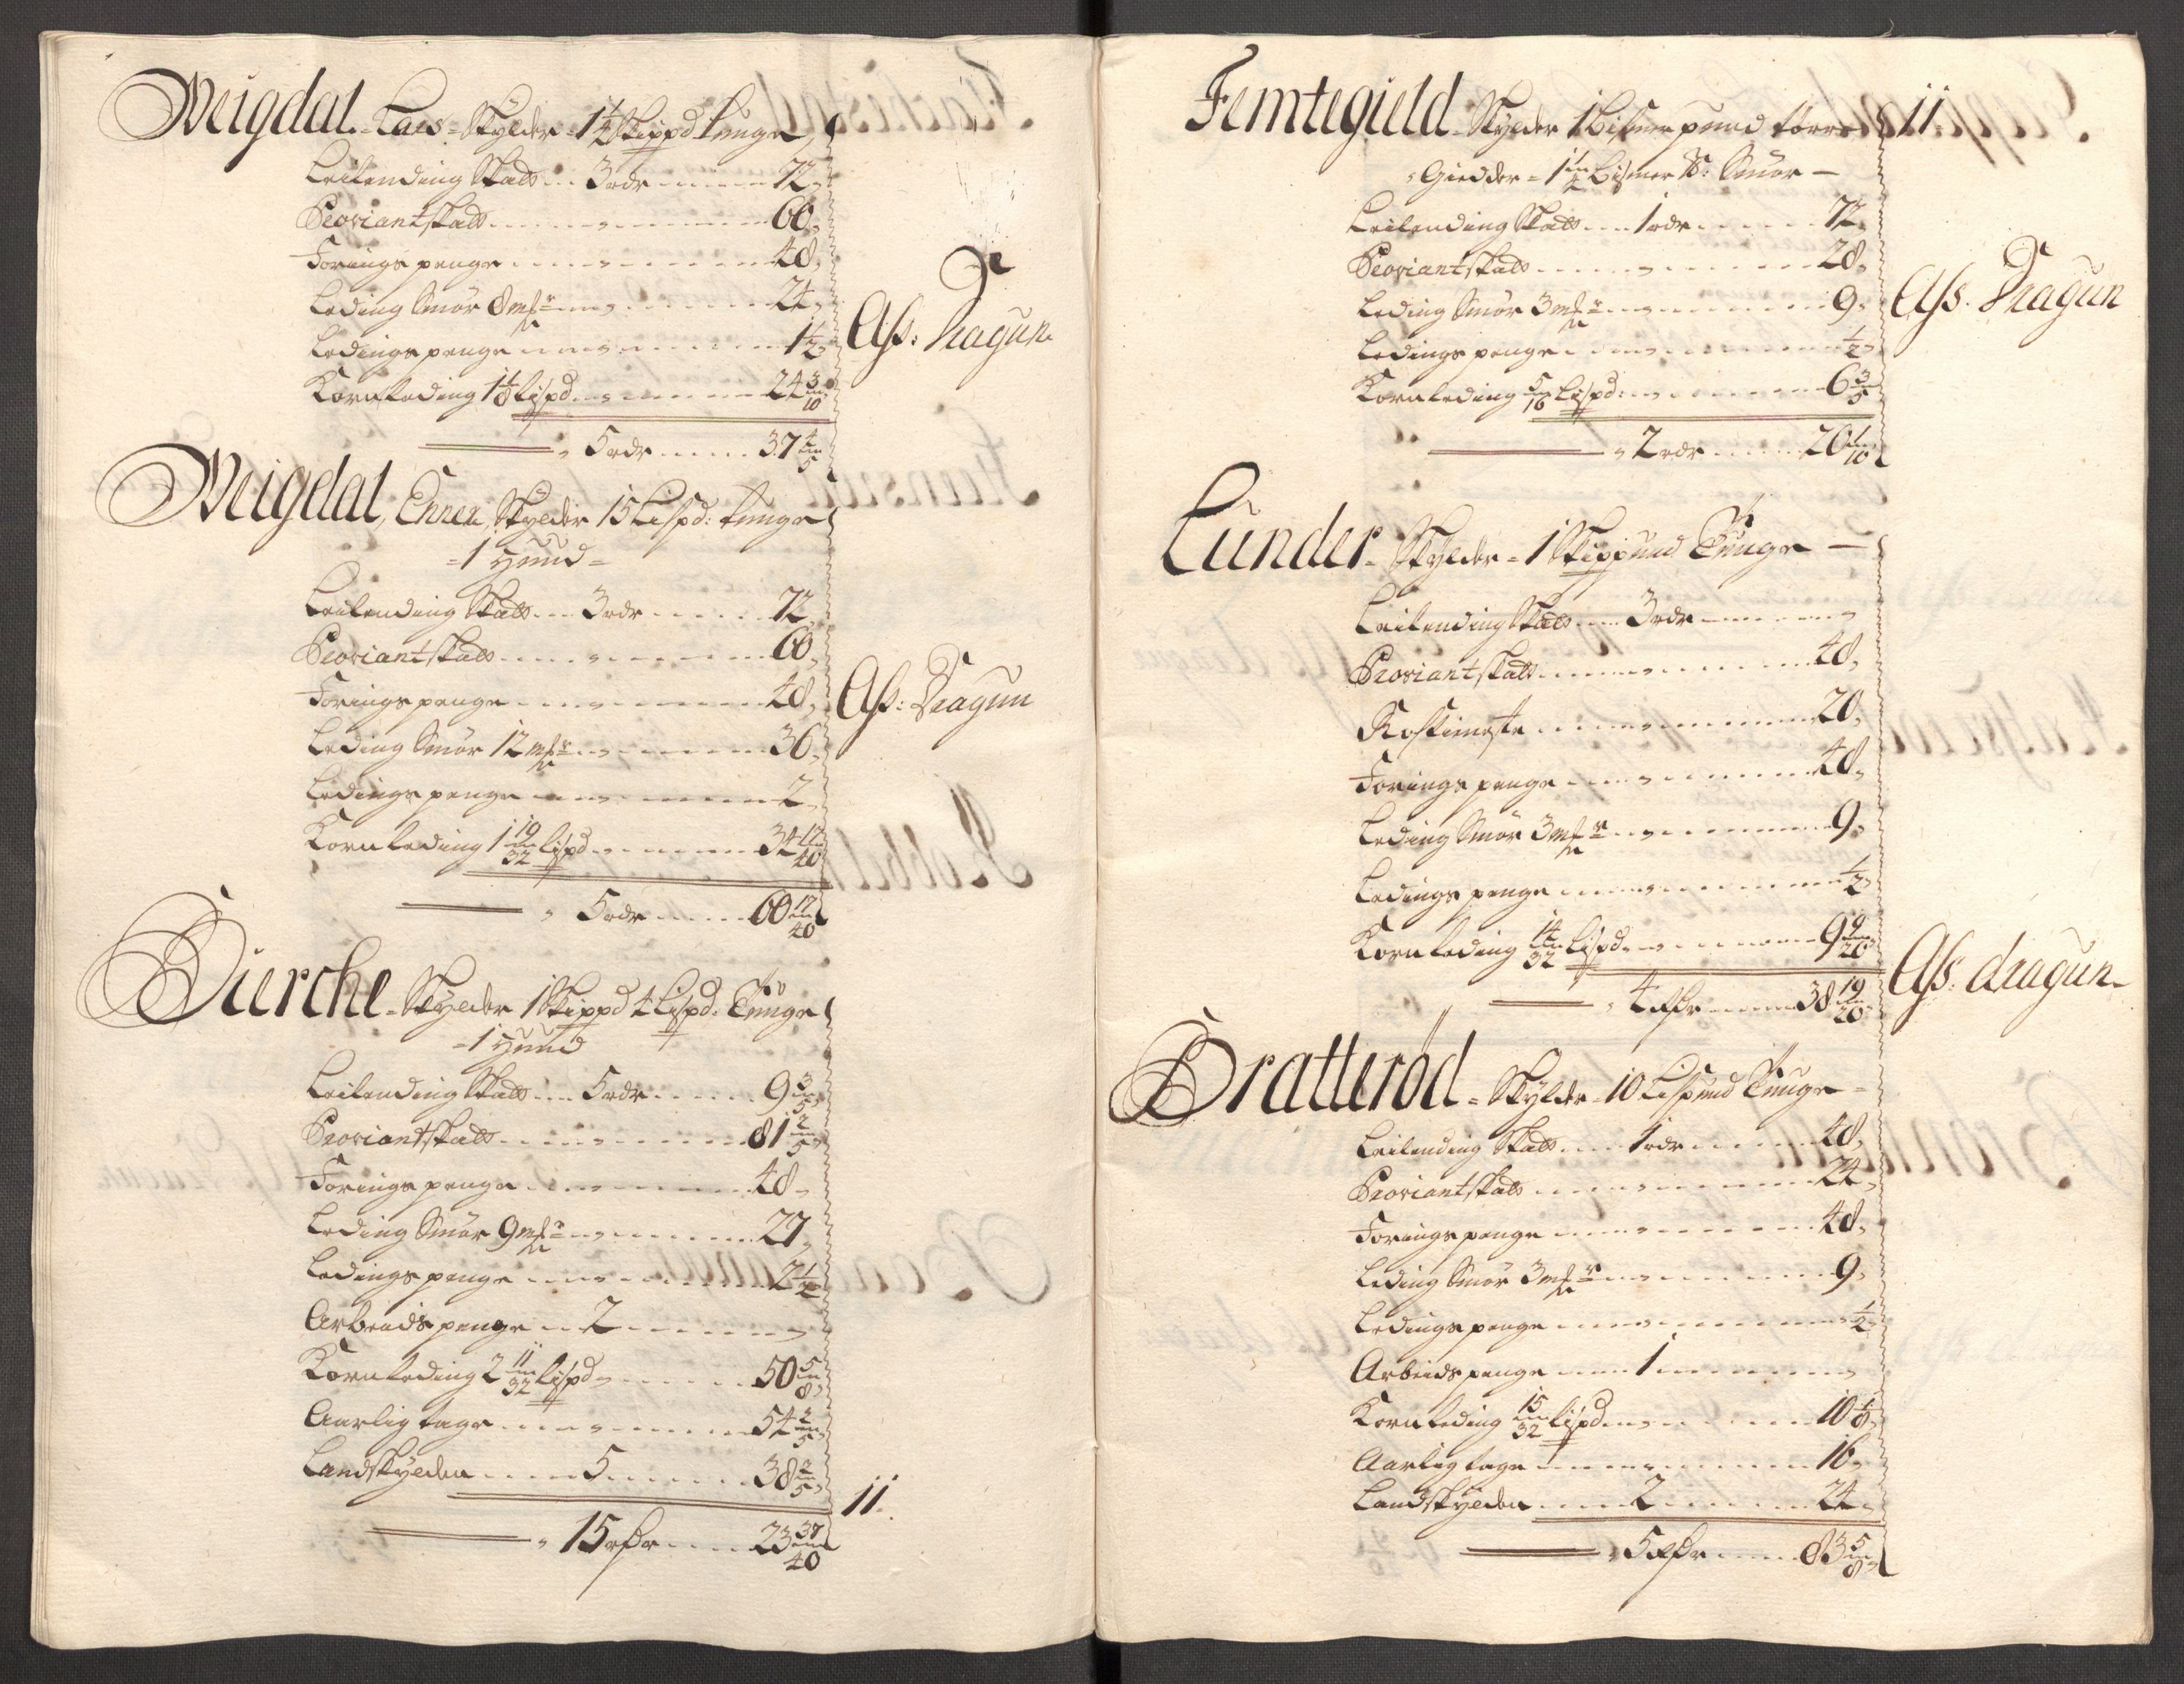 Meigdal. Lars Skylder 1 1/4 Skippd Tunge
Leilending Skatt 3 rdr 72
Proviantskatt 60
Foringspenge 48
Leding Smør 8 mkr 24
Ledingspenge 1 1/2
Kornleding 1 1/8 Lispd 24 3/10
5 rdr 37 4/5
Ass: Dragun
Meigdal, Ennen, Skylder 15 Lispd: tunge
1 Huud
Leilending Skatt 3 rdr 72
Proviantskatt 60
Foringspenge 48
Leding Smør 12 mkr 36
Ledingspenge 2
Kornleding 1 19/32 Lispd 34 17/40
5 rdr 60 17/40
Ass: Dragun
Bierche Skylder 1 Skippd 4 Lispd: Tunge
1 Huud
Leilending Skatt 5 rdr 9 3/5
Proviantskatt 81 2/5
Foringspenge 48
Leding Smør 9 mkr 27
Ledingspenge 2 1/2
Arbeidspenge 2
Kornleding 2 11/32 Lispd 50 5/8
Aarlig tage 54 2/5
Landskylden 5 38 2/5
15 rdr 23 37/40
11.
Femtegield Skylder 1 Bismerpund tørre
Giedder 1 1/2 Bismer ℔: Smør
11.
Leilending Skatt 1 rdr 72
Proviantskatt 28
Leding Smør 3 mkr 9
Ledingspenge 1/2
Kornleding 5/16 Lispd: 6 3/5
2 rdr 20 1/10
Ass. Dragun
Lunder Skylder 1 Skippund Tunge
Leilending Skatt 3 rdr
Proviantskatt 48
Rostieneste 20
Foringspenge 48
Leding Smør 3 mkr 9
Ledingspenge 1/2
Kornleding 14/32 Lispd 9 9/20
4 rdr 38 19/20
Ass: dragun
Bratterød Skylder 10 Lispund Tunge
Leilending Skatt 1 rdr 48
Proviantskatt 24
Foringspenge 48
Leding Smør 3 mkr 9
Ledingspenge 1/2
Arbeidspenge 1
Kornleding 15/32 Lispd 10 1/8
Aarlig tage 16
Landskylden 2 24
5 rdr 83 5/8